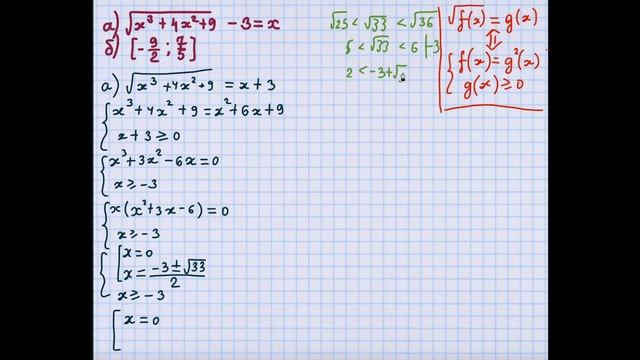 а) √(x³ + 4x² + 9) - 3 = x
б) [-9/2 ; 7/5]
а) √(x³ + 4x² + 9) = x + 3
{ x³ + 4x² + 9 = x² + 6x + 9
x + 3 ≥ 0
{ x³ + 3x² - 6x = 0
x ≥ -3
{ x(x² + 3x - 6) = 0
x ≥ -3
{ [ x = 0
x = (-3 ± √33)/2
x ≥ -3
[ x = 0
√25 < √33 < √36
5 < √33 < 6 | -3
2 < -3 + √
√f(x) = g(x)
⇕
{ f(x) = g²(x)
g(x) ≥ 0